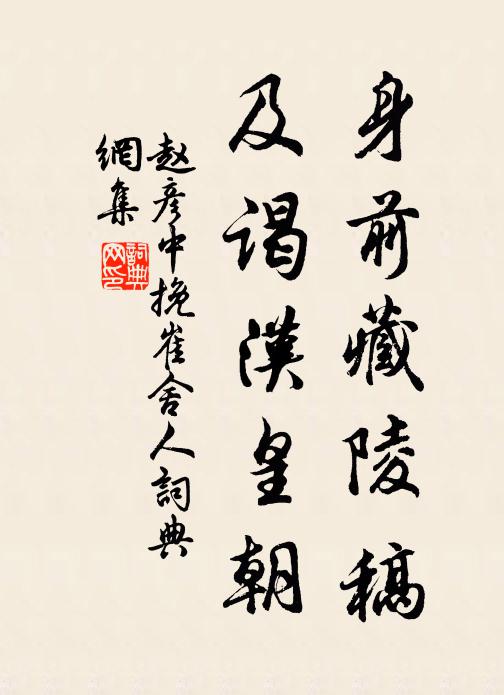 身前藏陵稿
及谒漢皇朝
赵彦中挽崔舍人詞典
網集
詞典网印